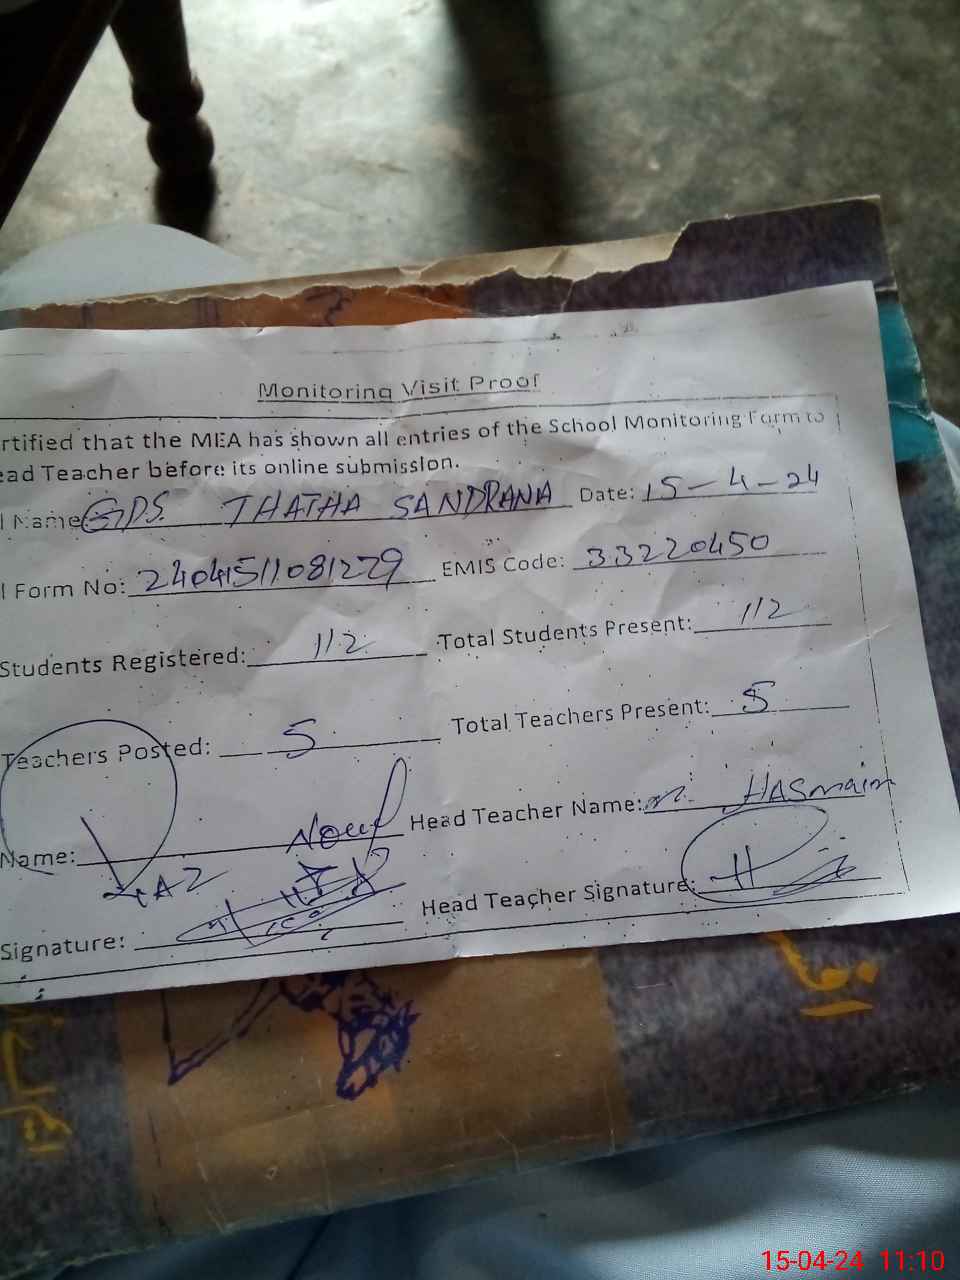 Monitoring Visit Proof
rtified that the MEA has shown all entries of the School Monitoring Form to
ead Teacher before its online submission.
l Name GPS THATHA SANDRANA Date: 15-4-24
l Form No: 24041511081229 EMIS Code: 33220450
Students Registered: 112 Total Students Present: 112
Teachers Posted: 5 Total Teachers Present: 5
Name: Head Teacher Name: M. HASnain
Signature: Head Teacher Signature:
15-04-24 11:10